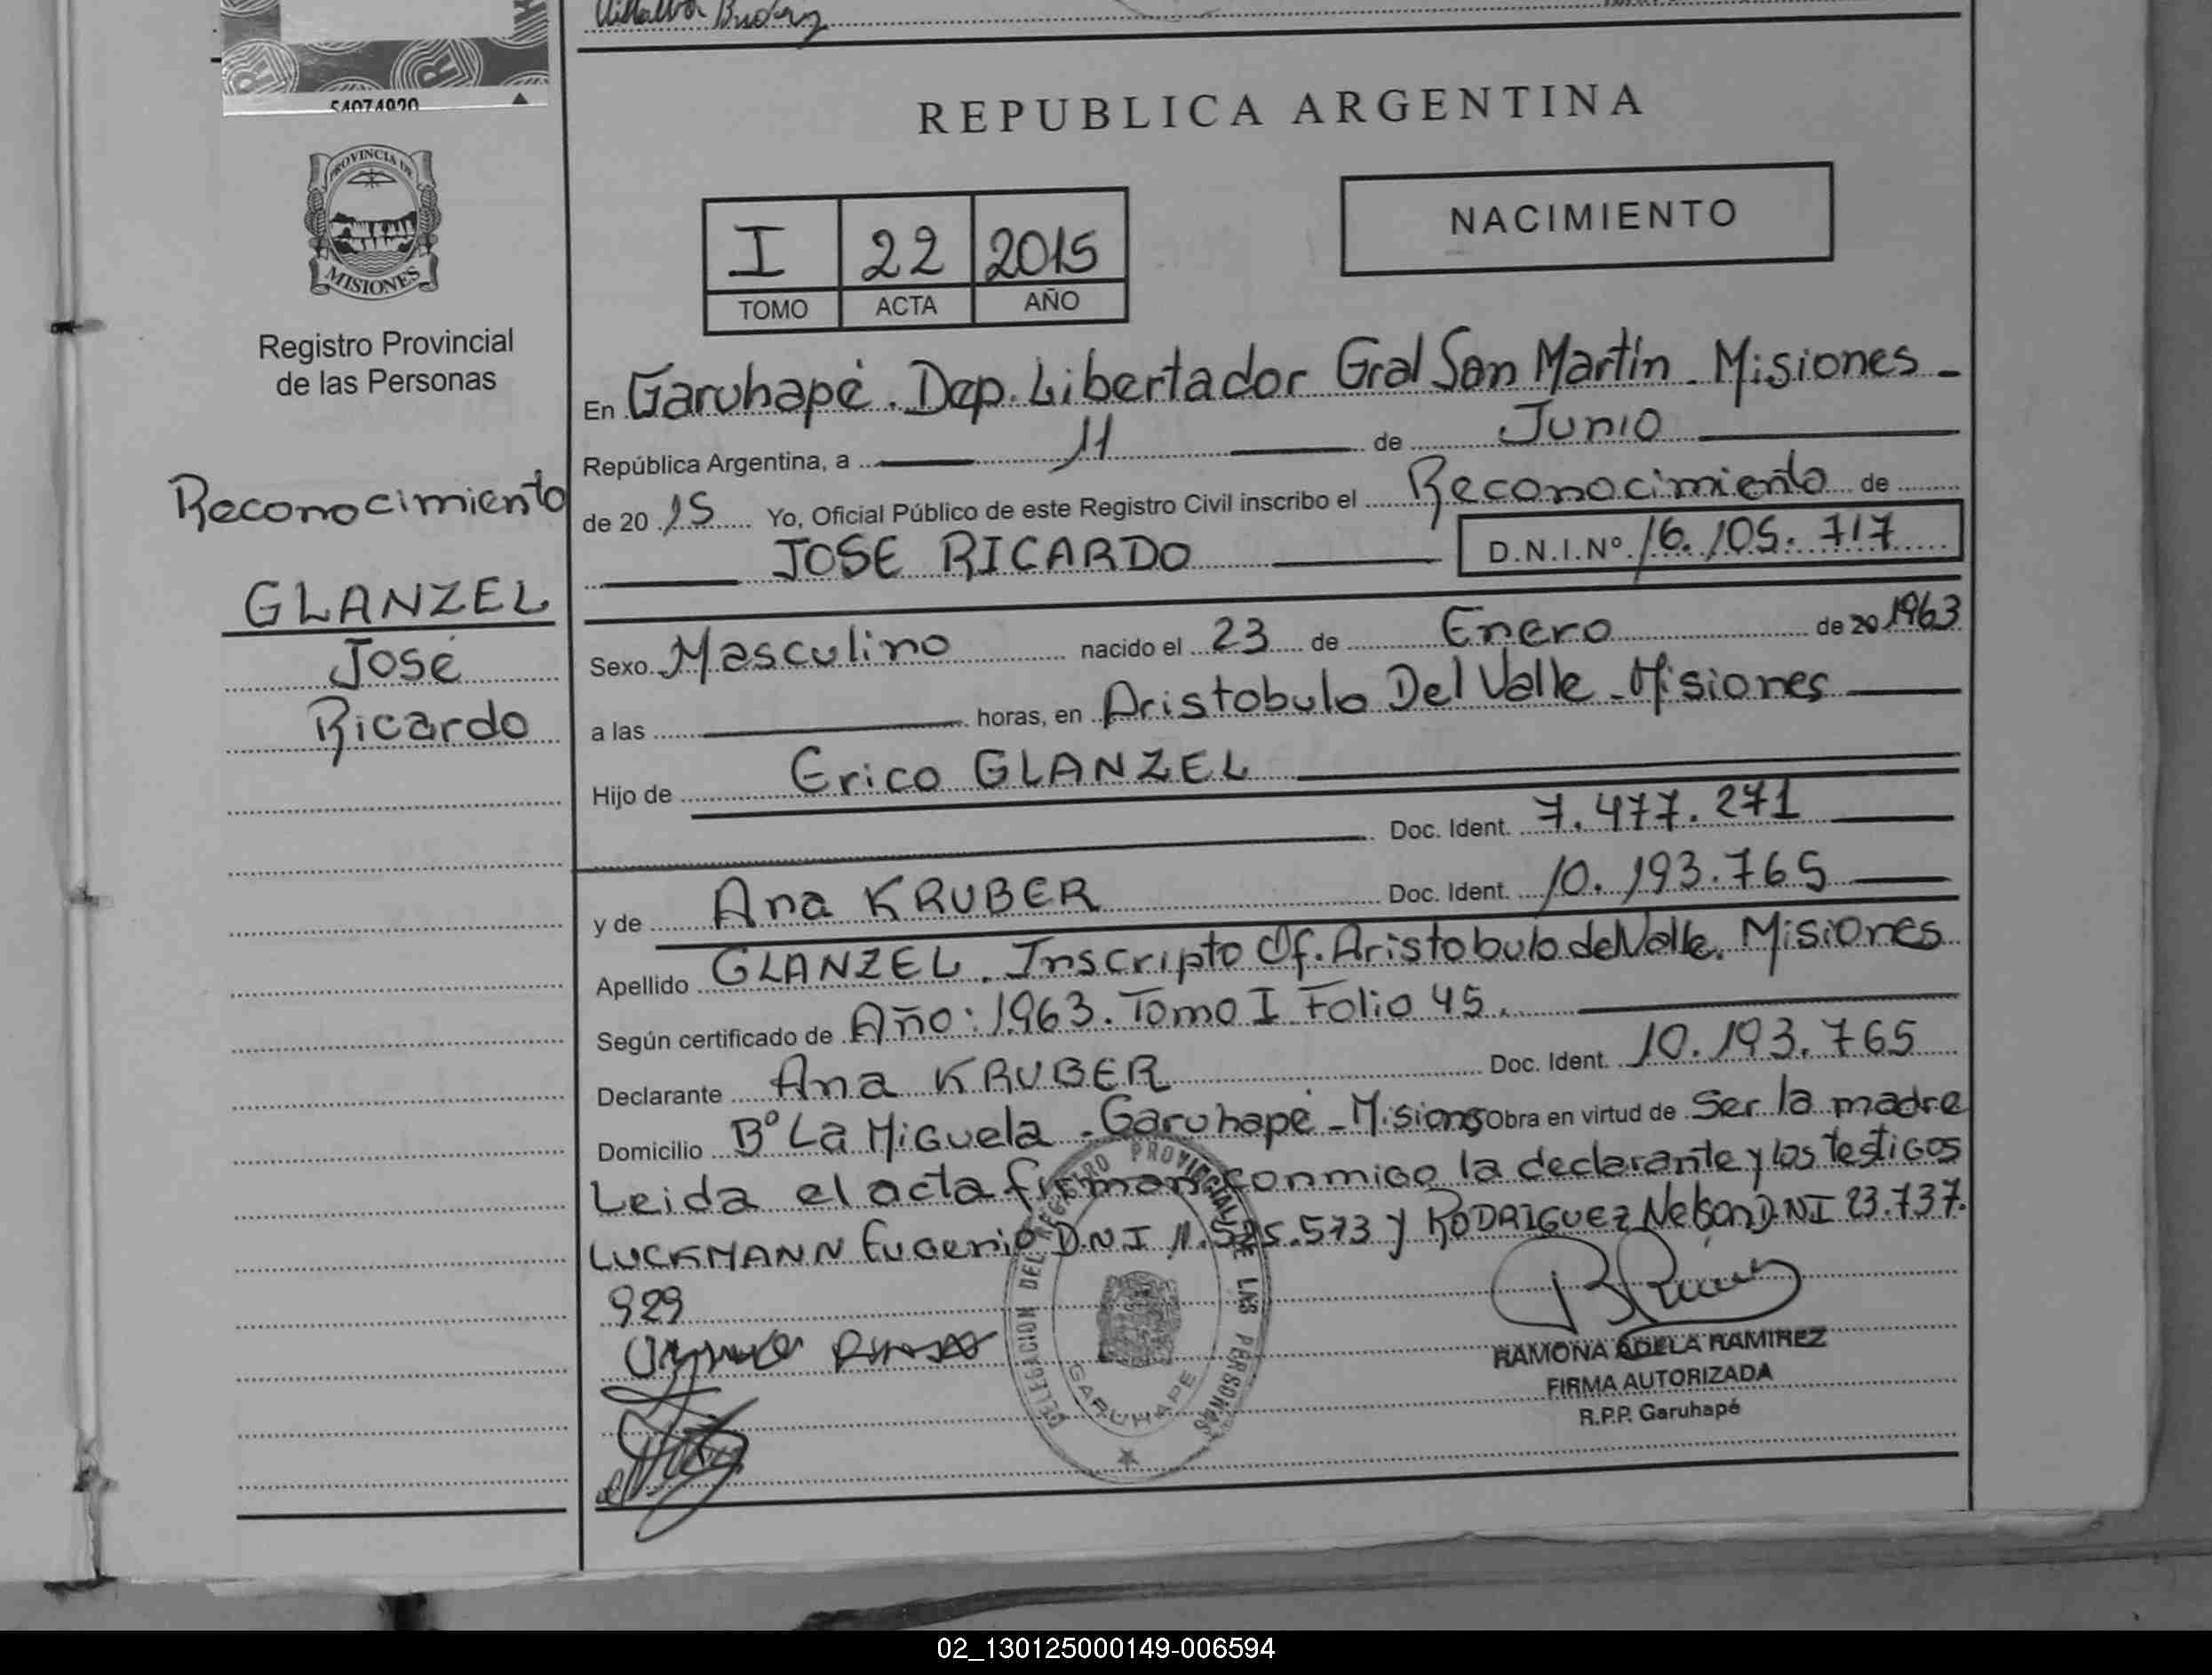 Villalba
54074920
PROVINCIA DE
MISIONES
Registro Provincial
de las Personas
Reconocimiento
GLANZEL
José
Ricardo
REPUBLICA ARGENTINA
I 22 2015
TOMO ACTA AÑO
NACIMIENTO
En Garuhapé. Dep. Libertador Gral San Martín. Misiones -
República Argentina, a 11 de Junio
de 20 15 Yo, Oficial Público de este Registro Civil inscribo el Reconocimiento de
JOSE RICARDO D.N.I.Nº 16.105.717
Sexo Masculino nacido el 23 de Enero de 20 1963
a las horas, en Aristobulo Del Valle - Misiones
Hijo de Erico GLANZEL
Doc. Ident. 7.477.271
y de Ana KRUBER Doc. Ident. 10.193.765
Apellido GLANZEL. Inscripto Of. Aristobulo del Valle. Misiones
Según certificado de Año: 1963. Tomo I Folio 45.
Declarante Ana KRUBER Doc. Ident. 10.193.765
Domicilio Bº La Miguela - Garuhapé - Misiones Obra en virtud de Ser la madre
Leida el acta firman conmigo la declarante y los testigos
LUCKMANN Eugenio D.N.I 11.525.573 y RODRIGUEZ Nelson D.NI 23.737.
929
DELEGACION DEL REGISTRO PROVINCIAL DE LAS PERSONAS
GARUHAPE
RAMONA ADELA RAMIREZ
FIRMA AUTORIZADA
R.P.P. Garuhapé
02_130125000149-006594